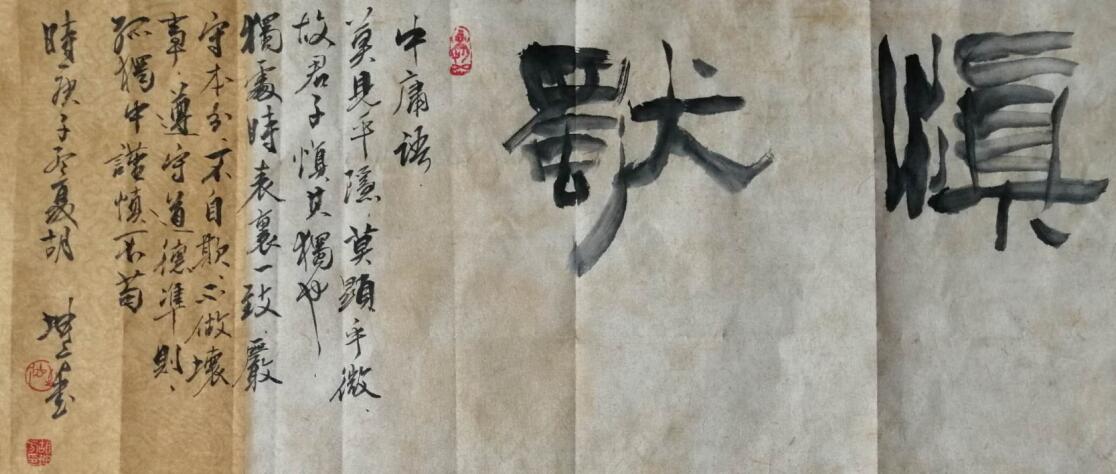 慎獨
中庸語
莫見乎隱、莫顯乎微、
故君子慎其獨也
獨處時表裏一致、嚴
守本分、不自欺、不做壞
事、遵守道德準則、
孤獨中謹慎不苟
時庚子夏胡坤書